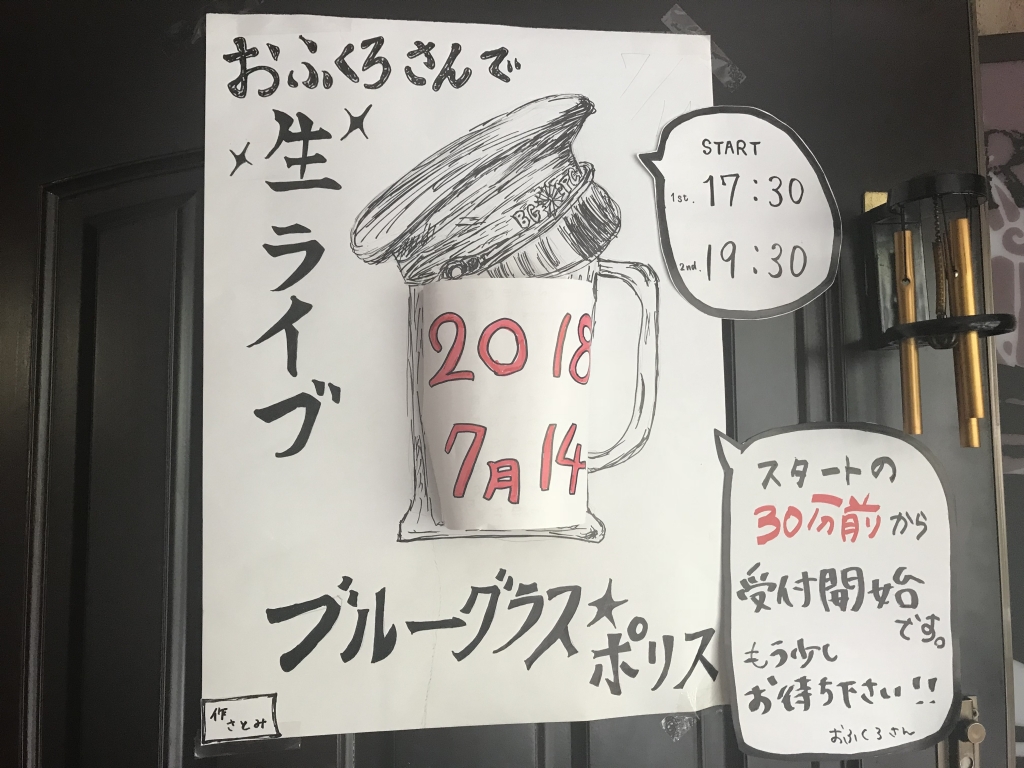 おふくろさんで
生ライブ
START
1st. 17:30
2nd. 19:30
2018
7月14
スタートの
30分前から
受付開始
です。
もう少し
お待ち下さい!!
おふくろさん
ブルーグラス★
ポリス
作
さとみ